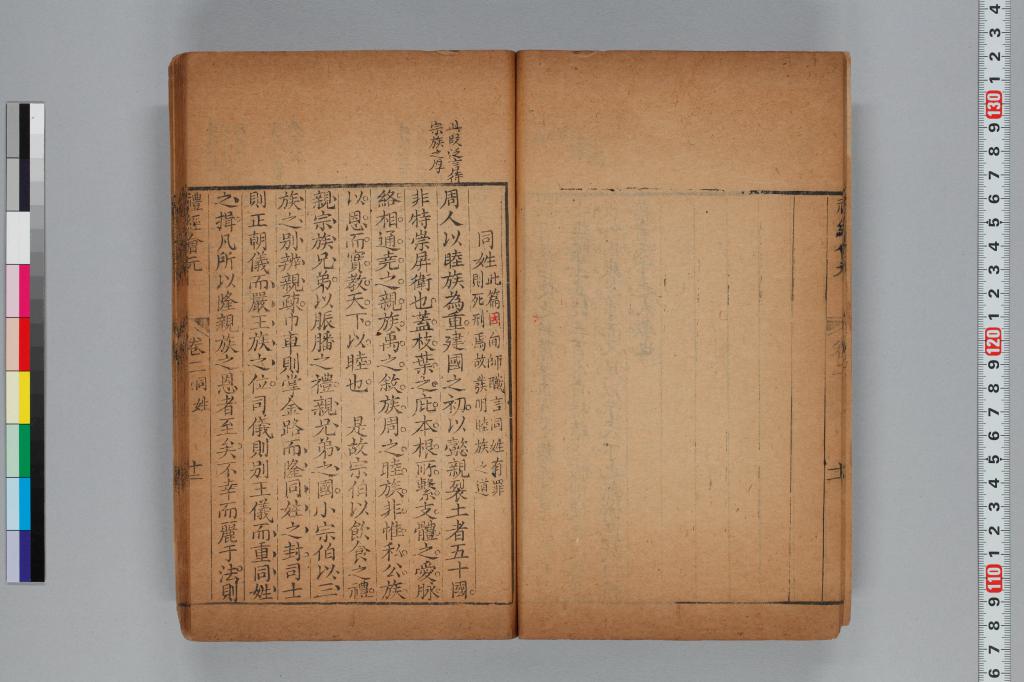 同姓
此篇因甸師職言同姓有罪
則死刑焉故發明睦族之道
周人以睦族為重建國之初以懿親裂土者五十國
非特崇屏衛也蓋枝葉之庇本根所繫支體之愛脉
絡相通堯之親族禹之敘族周之睦族非惟私公族
以恩而實教天下以睦也 是故宗伯以飲食之禮
親宗族兄弟以脤膰之禮親兄弟之國小宗伯以三
族之别辨親疎巾車則掌金路而隆同姓之封司士
則正朝儀而嚴王族之位司儀則别王儀而重同姓
之揖凡所以隆親族之恩者至矣不幸而麗于法則
宗族之厚
禮經會元
卷二 同姓
十二